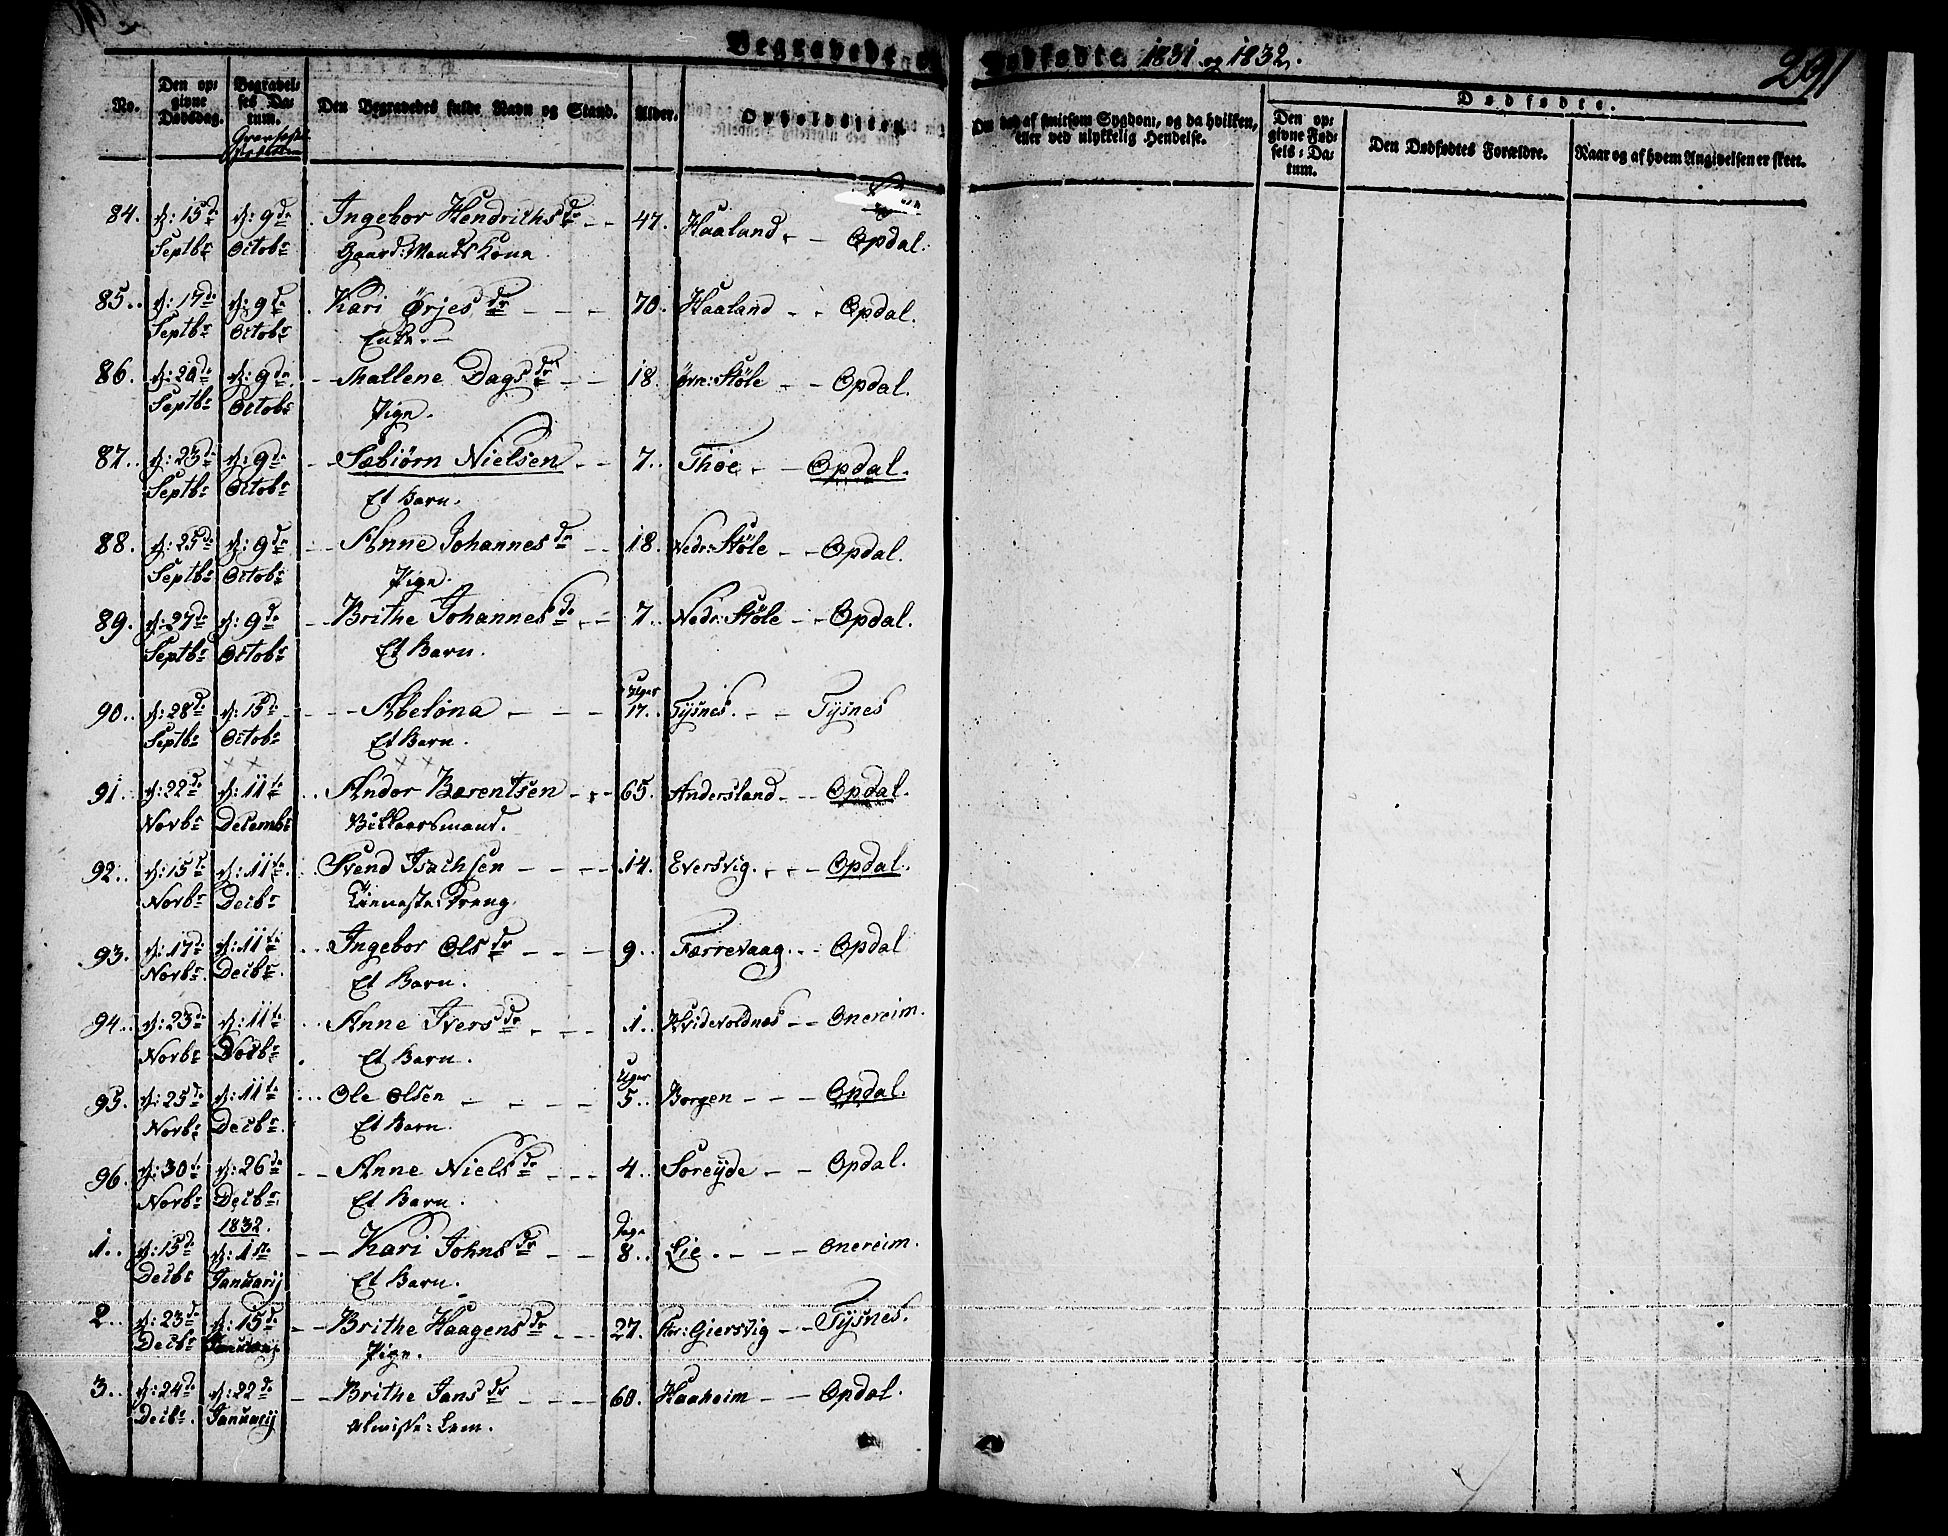 Begravede og Dødfødte 1831 og 1832. 291
No. | Den opgivne Dødsdag. | Begravelses Datum. | Den Begravedes fulde Navn og Stand. | Alder. | Opholdssted. | Om død af smitsom Sygdom, og da hvilken, eller ved ulykkelig Hendelse. | Dødfødte. | Den opgivne Fødsels-Datum. | Den Dødfødtes Forældre. | Naar og af hvem Angivelsen er skeet.
84. d: 15de d: 9de Ingebor Hendrichsdr – – 47. Haaland. – Opdal.
Septbr Octobr Gaard: Mands Kone.
85.. d: 17de d: 9de Kari Ørjesdr – – – 70. Haaland – – Opdal.
Septbr Octobr Enke. –
86. d: 20de d: 9de – – Mallene Dagsdr – – 18. Øvre: Støle – – Opdal.
Septbr Octobr Pige.
87.. d: 23de d: 9de – – Sæbiørn Nielsen – – 7.. Thøe. – – Opdal.
Septbr Octobr Et Barn.
88. d: 25de d: 9de – – Anne Johannesdr – – 18. Nedr: Støle – – Opdal.
Septbr Octobr Pige.
89. d: 27de d: 9de – Brithe Johannesdr – – 7.. Nedr: Støle – – Opdal.
Septbr Octobr Et Barn.
Uger
90.. d: 28de d: 15de – – – Abelona – – – 17.. Tysnes. – – Tysnes
Septbr Octobr Et Barn.
91.. d: 22de d: 11te .. Andor Bærentsen – – 65. Andersland – – Opdal.
Novbr Decembr Villaarsmand.
92.. d: 15de d: 11te. Svend Isachsen – – – – 14. Eversvig. – – Opdal.
Novbr Decbr Tieneste: Dreng.
93. d: 17de d: 11te .. Ingebor Olsdr – – – 9.. Færrevaag. – – Opdal
Novbr. Decbr. Et Barn.
94.. d: 23de d: 11te .. Anne Iversdr – – – 1.. Hvidevoldnes – – Onereim.
Novbr Novbr Et Barn.
Uger
95. d: 25de d: 11te ... Ole Olsen – – – – 5.. Borgen – – – Opdal.
Novbr Decbr. Et Barn.
96. d: 30te d: 26de – – Anne Nielsdr – – – 4.. Søreyde – – Opdal.
Novbr Decbr. Et Barn.
1832. Dage
1.. d: 15de d: 1ste – – Kari Johnsdr – – 8.. Lie. – – – Onereim.
Decbr Januarij Et Barn.
2.. d: 23de d: 15de – – Brithe Haagensdr – – – 27. Stor: Giersvig – – Tysnes.
Decbr Januarij Pige.
3.. d: 24de d: 22de – – Brithe Jansdr – – – 60. Haaheim – – Opdal.
Decbr. Januarij Almisse: Lem.